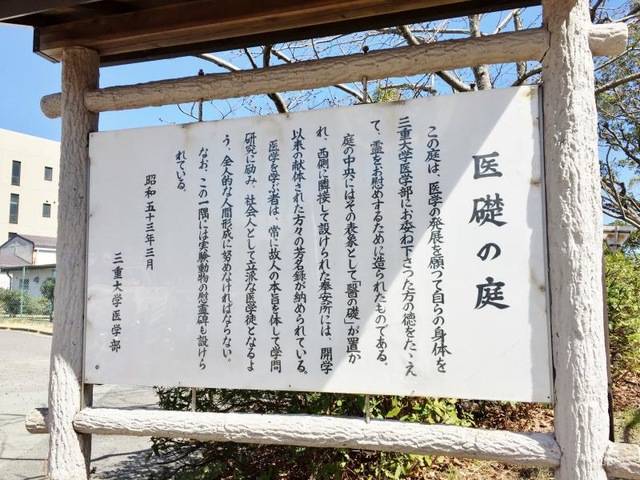 医礎の庭
この庭は、医学の発展を願って自らの身体を
三重大学医学部にお委ね下さった方の徳をたゝえ
て、霊をお慰めするために造られたものである。
庭の中央にはその表象として「醫の礎」が置か
れ、西側に隣接して設けられた奉安所には、開学
以来の献体された方々の芳名録が納められている。
医学を学ぶ者は、常に故人の本旨を体して学問
研究に励み、社会人として立派な医学徒となるよ
う、全人的な人間形成に努めなければならない。
なお、この一隅には実験動物の慰霊碑も設けら
れている。
昭和五十三年三月
三重大学医学部